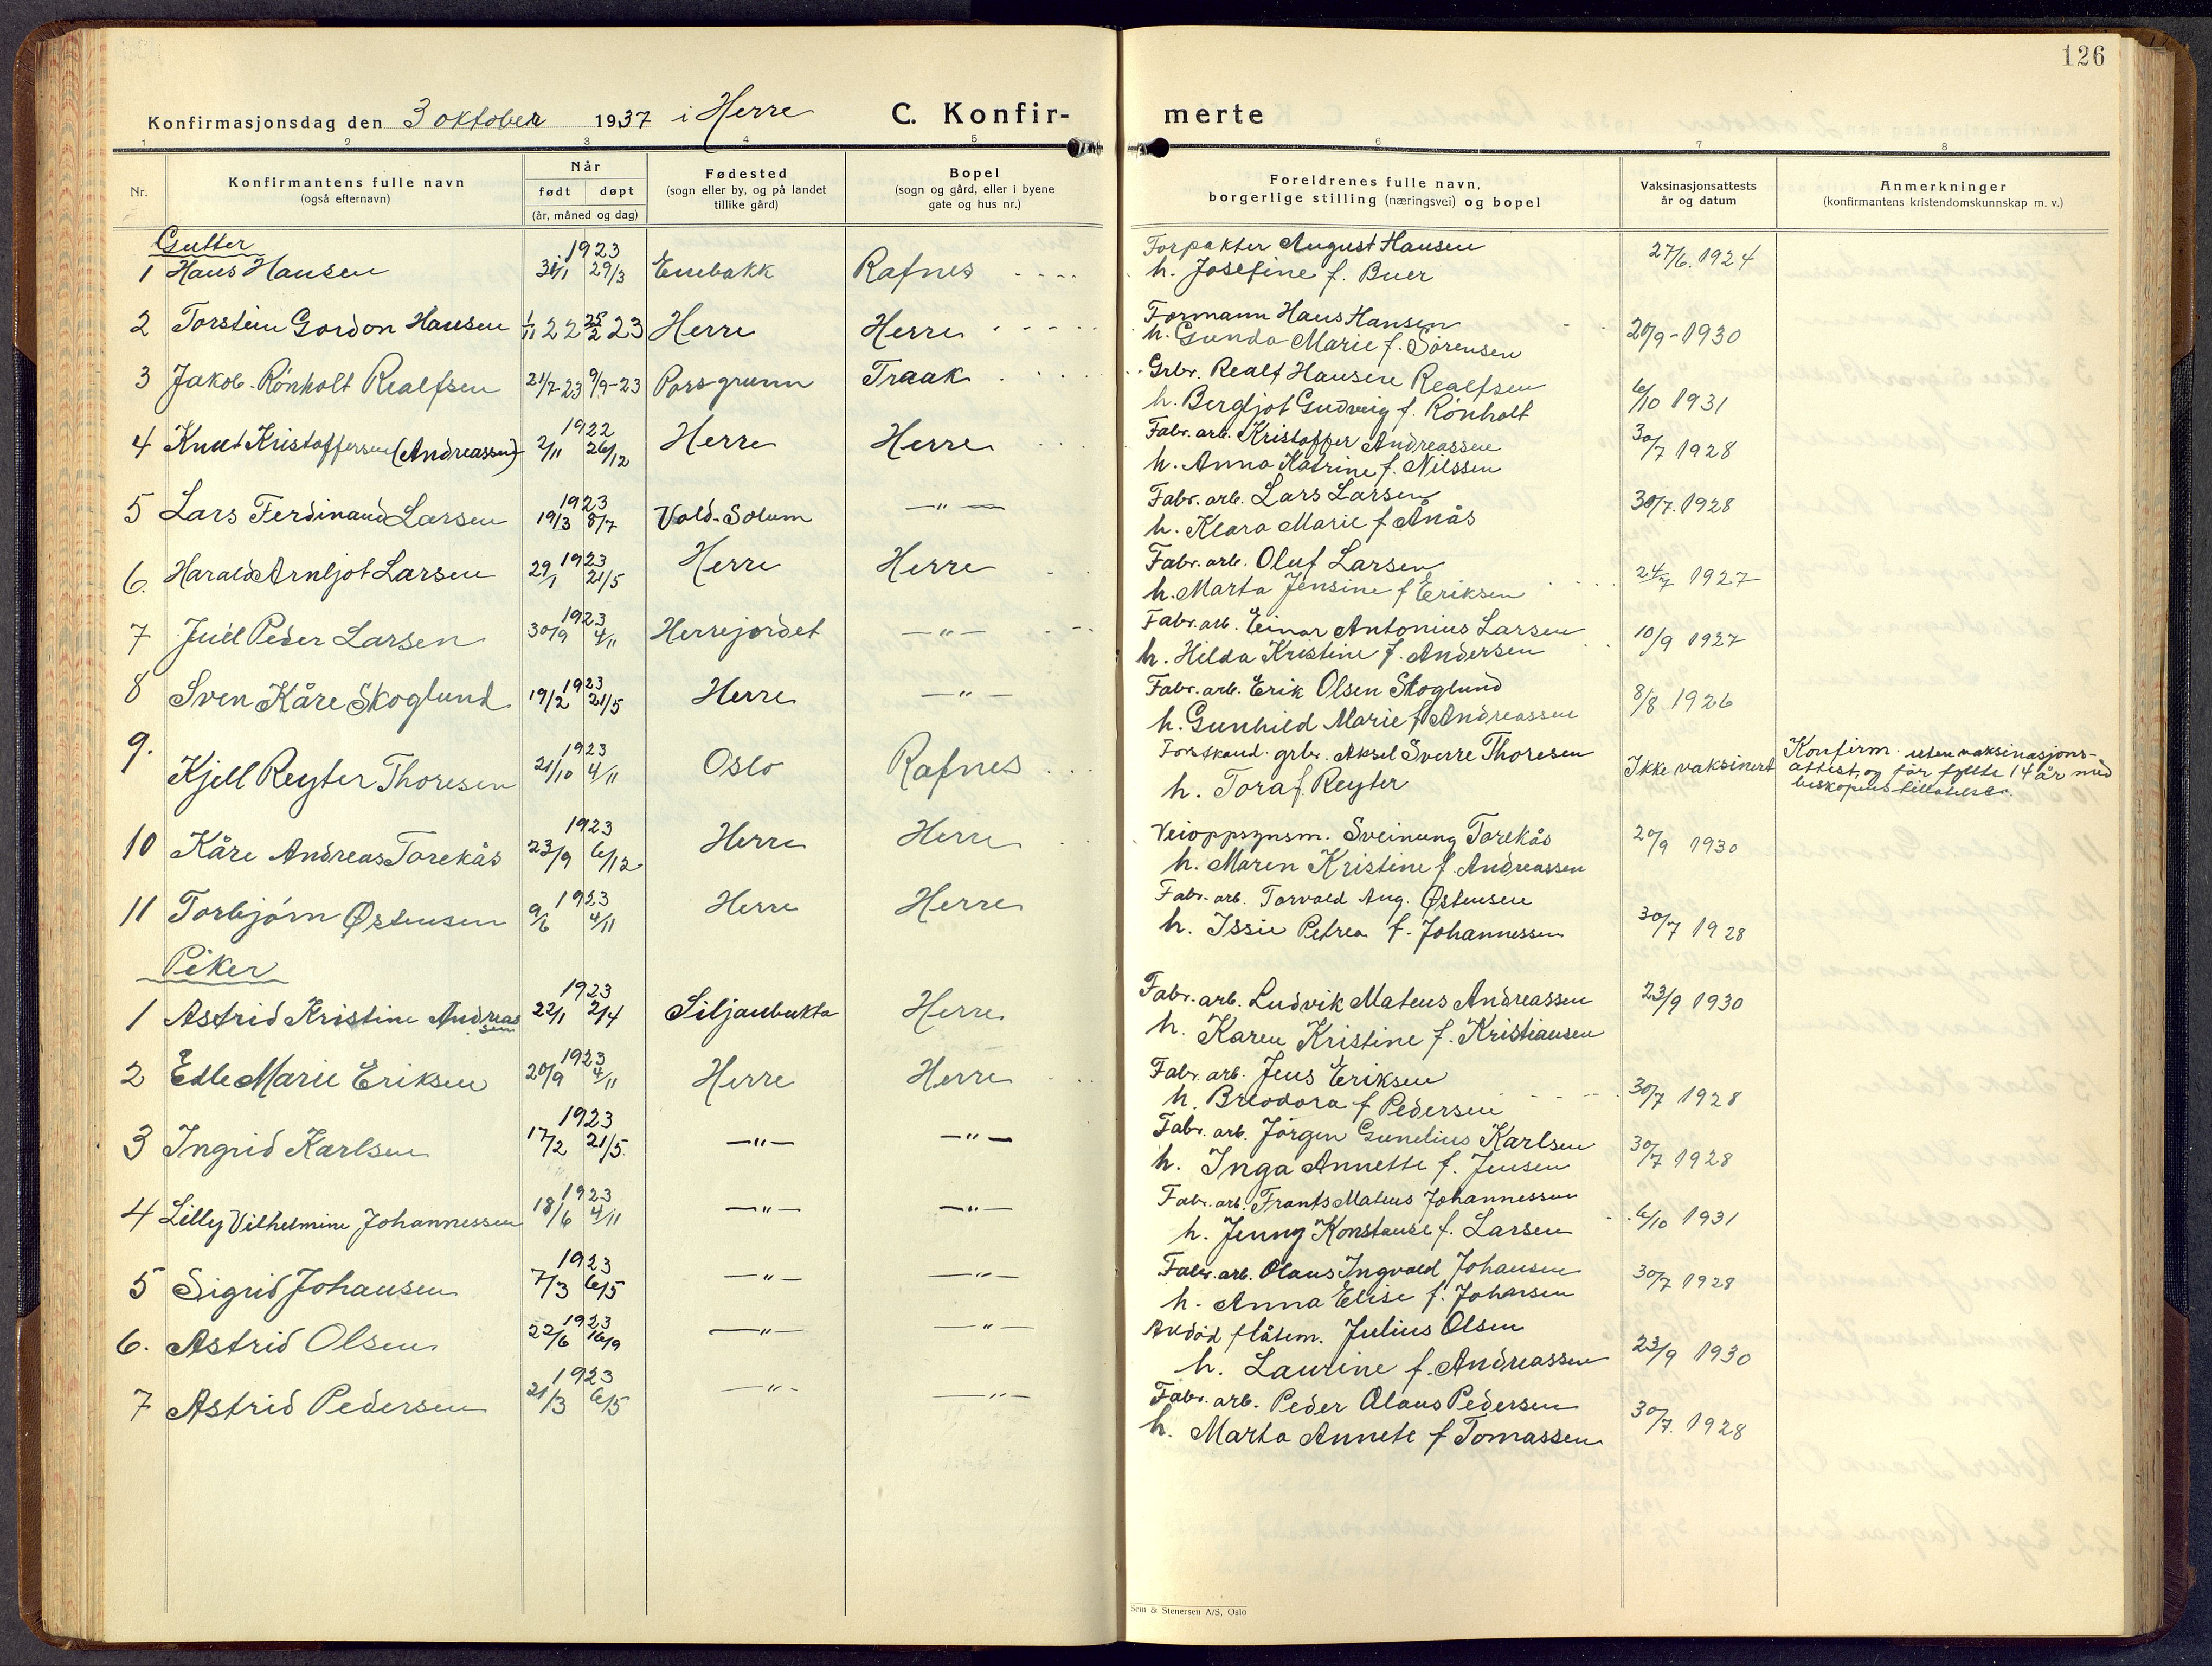 126
Konfirmasjonsdag den 3 oktober 1937 i Herre C. Konfir- merte
1 2 3 4 5 6 7 8
Nr. Konfirmantens fulle navn (også efternavn) Når født døpt (år, måned og dag) Fødested (sogn eller by, og på landet tillike gård) Bopel (sogn og gård, eller i byene gate og hus nr.) Foreldrenes fulle navn, borgerlige stilling (næringsvei) og bopel Vaksinasjonsattests år og datum Anmerkninger (konfirmantens kristendomskunnskap m. v.)
Gutter
1 Hans Hansen 1923 31/1 29/3 Enebakk Rafnes Forpakter August Hansen 27/6. 1924
h. Josefine f. Buer
2 Torstein Gordon Hansen 1/11 22 25/2 23 Herre Herre Formann Hans Hansen 20/9-1930
h. Gunda Marie f. Sørensen
3 Jakob Rónholt Realfsen 21/7-23 9/9-23 Porsgrunn Traak Grbr. Realf Hansen Realfsen 6/10 1931
h. Bergljot Gudveig f. Rónholt
4 Knut Kristoffersen (Andreassen) 1922 2/11 26/12 Herre Herre Fabr. arb. Kristoffer Andreassen 30/7 1928
h. Anna Katrine f. Nilssen
5 Lars Ferdinand Larsen 1923 19/3 8/7 Vold-Solum —"— Fabr. arb. Lars Larsen 30/7. 1928
h. Klara Marie f Anås
6. Harald Arnljot Larsen 1923 29/1 21/5 Herre Herre Fabr. arb. Oluf Larsen 24/7 1927
h. Marta Jensine f Eriksen
7 Juel Peder Larsen 1923 30/9 4/11 Herrejordet —"— Fabr. arb. Einar Antonius Larsen 10/9 1927
h. Hilda Kristine f. Andersen
8 Sven Kåre Skoglund 1923 19/2 21/5 Herre —"— Fabr. arb. Erik Olsen Skoglund 8/8 1926
h. Gunhild Marie f Andreassen
9. Kjell Reyter Thoresen 1923 21/10 4/11 Oslo Rafnes Forstkand. grbr. Aksel Sverre Thoresen Ikke vaksinert Konfirm. uten vaksinasjons-
h. Tora f. Reyter attest, og før fyllte 14 år med
biskopens tillatelse.
10 Kåre Andreas Torekås 1923 23/9 6/12 Herre Herre Veioppsynsm. Sveinung Torekås 20/9 1930
h. Maren Kristine f. Andreassen
11 Torbjørn Østensen 1923 9/6 4/11 Herre Herre Fabr. arb. Torvald Aug. Østensen 30/7 1928
h. Issie Petrea f. Johannessen
Piker
1 Astrid Kristine Andreassen 1923 22/1 2/4 Siljanbukta Herre Fabr. arb. Ludvik Mateus Andreassen 23/9 1930
h. Karen Kristine f. Kristiansen
2 Edle Marie Eriksen 1923 20/9 4/11 Herre Herre Fabr. arb. Jens Eriksen 30/7 1928
h. Breodora f Pedersen
3 Ingrid Karlsen 1923 17/2 21/5 —"— —"— Fabr. arb. Jørgen Gunelius Karlsen 30/7 1928
h. Inga Annette f. Jensen
4 Lilly Vilhelmine Johannessen 1923 18/6 4/11 —"— —"— Fabr. arb. Frants Mateus Johannessen 6/10 1931
h. Jenny Konstanse f. Larsen
5 Sigrid Johansen 1923 7/3 6/5 —"— —"— Fabr. arb. Olaus Ingvald Johansen 30/7 1928
h. Anna Elise f. Johansen
6. Astrid Olsen 1923 22/6 16/9 —"— —"— Avdød flåtem. Julius Olsen 23/9 1930
h. Laurine f. Andreassen
7 Astrid Pedersen 1923 21/3 6/5 —"— —"— Fabr. arb. Peder Olaus Pedersen 30/7. 1928
h. Marta Annete f Tomassen
Sem & Stenersen A/S, Oslo